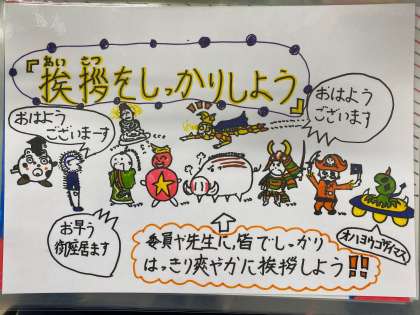 あい さつ
『挨拶をしっかりしよう』
おはよう
ございます
おはよう
ございます
お早う
御座居ます
オハヨウゴザイマス
委員や先生に、皆でしっかり
はっきり爽やかに挨拶しよう!!